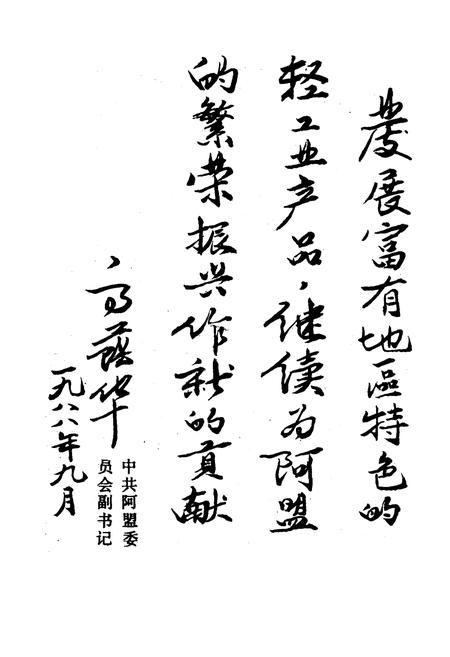 發展富有地區特色的
轻工业产品，继续为阿盟
的繁荣振兴作新的貢献
高华
一九八八年九月
中共阿盟委
员会副书记